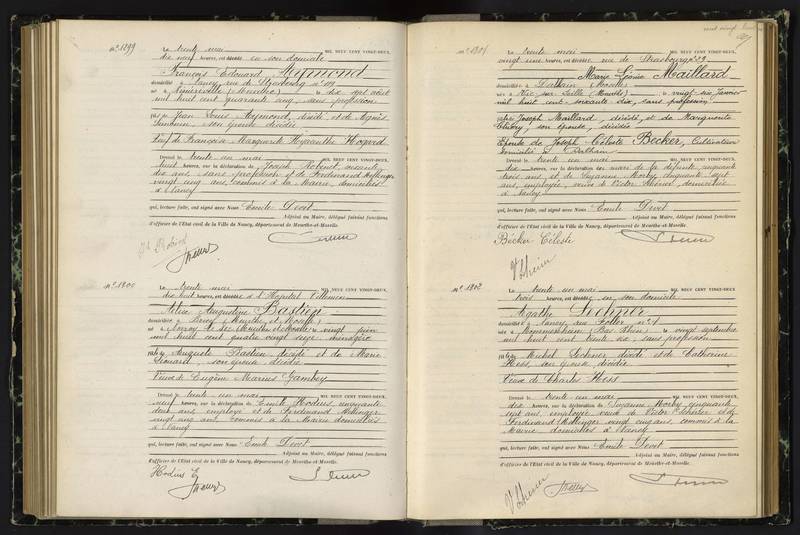 N° 1299
Le trente mai MIL NEUF CENT VINGT-DEUX,
dix neuf heures, est décédé en son domicile
François Edouard Reymond
domicilié à Nancy, rue de Strasbourg n° 119
né à (Meurthe), le dix sept août
mil huit cent quarante cinq, sans profession
fils de Jean Louis Reymond, décédé et de Agnès
son épouse, décédée
Veuf de Françoise Marguerite Hyacinthe
Dressé le trente un mai MIL NEUF CENT VINGT-DEUX,
huit heures, sur la déclaration de Joseph Robinet, soixante
dix ans, sans profession et de Ferdinand Mellinger
vingt cinq ans, commis à la Mairie, domiciliés
à Nancy
qui, lecture faite, ont signé avec Nous Emile Devit
Adjoint au Maire, délégué faisant fonctions
d'officier de l'Etat civil de la Ville de Nancy, département de Meurthe-et-Moselle.
N° 1300
Le trente mai MIL NEUF CENT VINGT-DEUX,
dix huit heures, est décédée à l'Hopital Villemin
Augustine Bastien
domiciliée à Briey (Meurthe et Moselle)
née à (Meurthe et Moselle) le vingt juin
mil huit cent quatre vingt seize, ménagère
fille de Auguste Bastien décédé et de Marie
son épouse, décédée
Veuve de Eugène Marius Gambey
Dressé le trente un mai MIL NEUF CENT VINGT-DEUX,
neuf heures, sur la déclaration de Emile Hodius, cinquante
ans, employé et de Ferdinand Mellinger
vingt cinq ans, commis à la Mairie domiciliés
à Nancy
qui, lecture faite, ont signé avec Nous Emile Devit
Adjoint au Maire, délégué faisant fonctions
d'officier de l'Etat civil de la Ville de Nancy, département de Meurthe-et-Moselle.
Hodius E
N° 1301
Le trente mai MIL NEUF CENT VINGT-DEUX,
vingt une heures, est décédée rue de Strasbourg n°
Marie Léonie Maillard
domiciliée à Dalhain (Moselle)
née à Vic sur Seille (Meurthe), le vingt six Janvier
mil huit cent soixante dix, sans profession
fille de Joseph Maillard, décédé, et de Marguerite
son épouse, décédée
Epouse de Joseph Céleste Becker, Cultivateur
domicilié à Dalhain
Dressé le trente un mai MIL NEUF CENT VINGT-DEUX,
dix heures, sur la déclaration du mari de la défunte, cinquante
trois ans, et de Suzanne Norby, cinquante sept
ans, employée, veuve de Victor domiciliée
à Nancy
qui, lecture faite, ont signé avec Nous Emile Devit
Adjoint au Maire, délégué faisant fonctions
d'officier de l'Etat civil de la Ville de Nancy, département de Meurthe-et-Moselle.
Bécker Céleste
N° 1302
Le trente un mai MIL NEUF CENT VINGT-DEUX,
trois heures, est décédée en son domicile
Agathe Lechner
domiciliée à Nancy, rue n° 1
née à (Bas Rhin) le vingt septembre
mil huit cent trente six, sans profession
fille de Michel Lechner décédé et de Catherine
Hess, son épouse décédée
Veuve de Charles Hess
Dressé le trente un mai MIL NEUF CENT VINGT-DEUX,
dix heures, sur la déclaration de Suzanne Norby cinquante
sept ans, employée veuve de Victor et de
Ferdinand Mellinger vingt cinq ans, commis à la
Mairie domiciliés à Nancy
qui, lecture faite, ont signé avec Nous Emile Devit
Adjoint au Maire, délégué faisant fonctions
d'officier de l'Etat civil de la Ville de Nancy, département de Meurthe-et-Moselle.